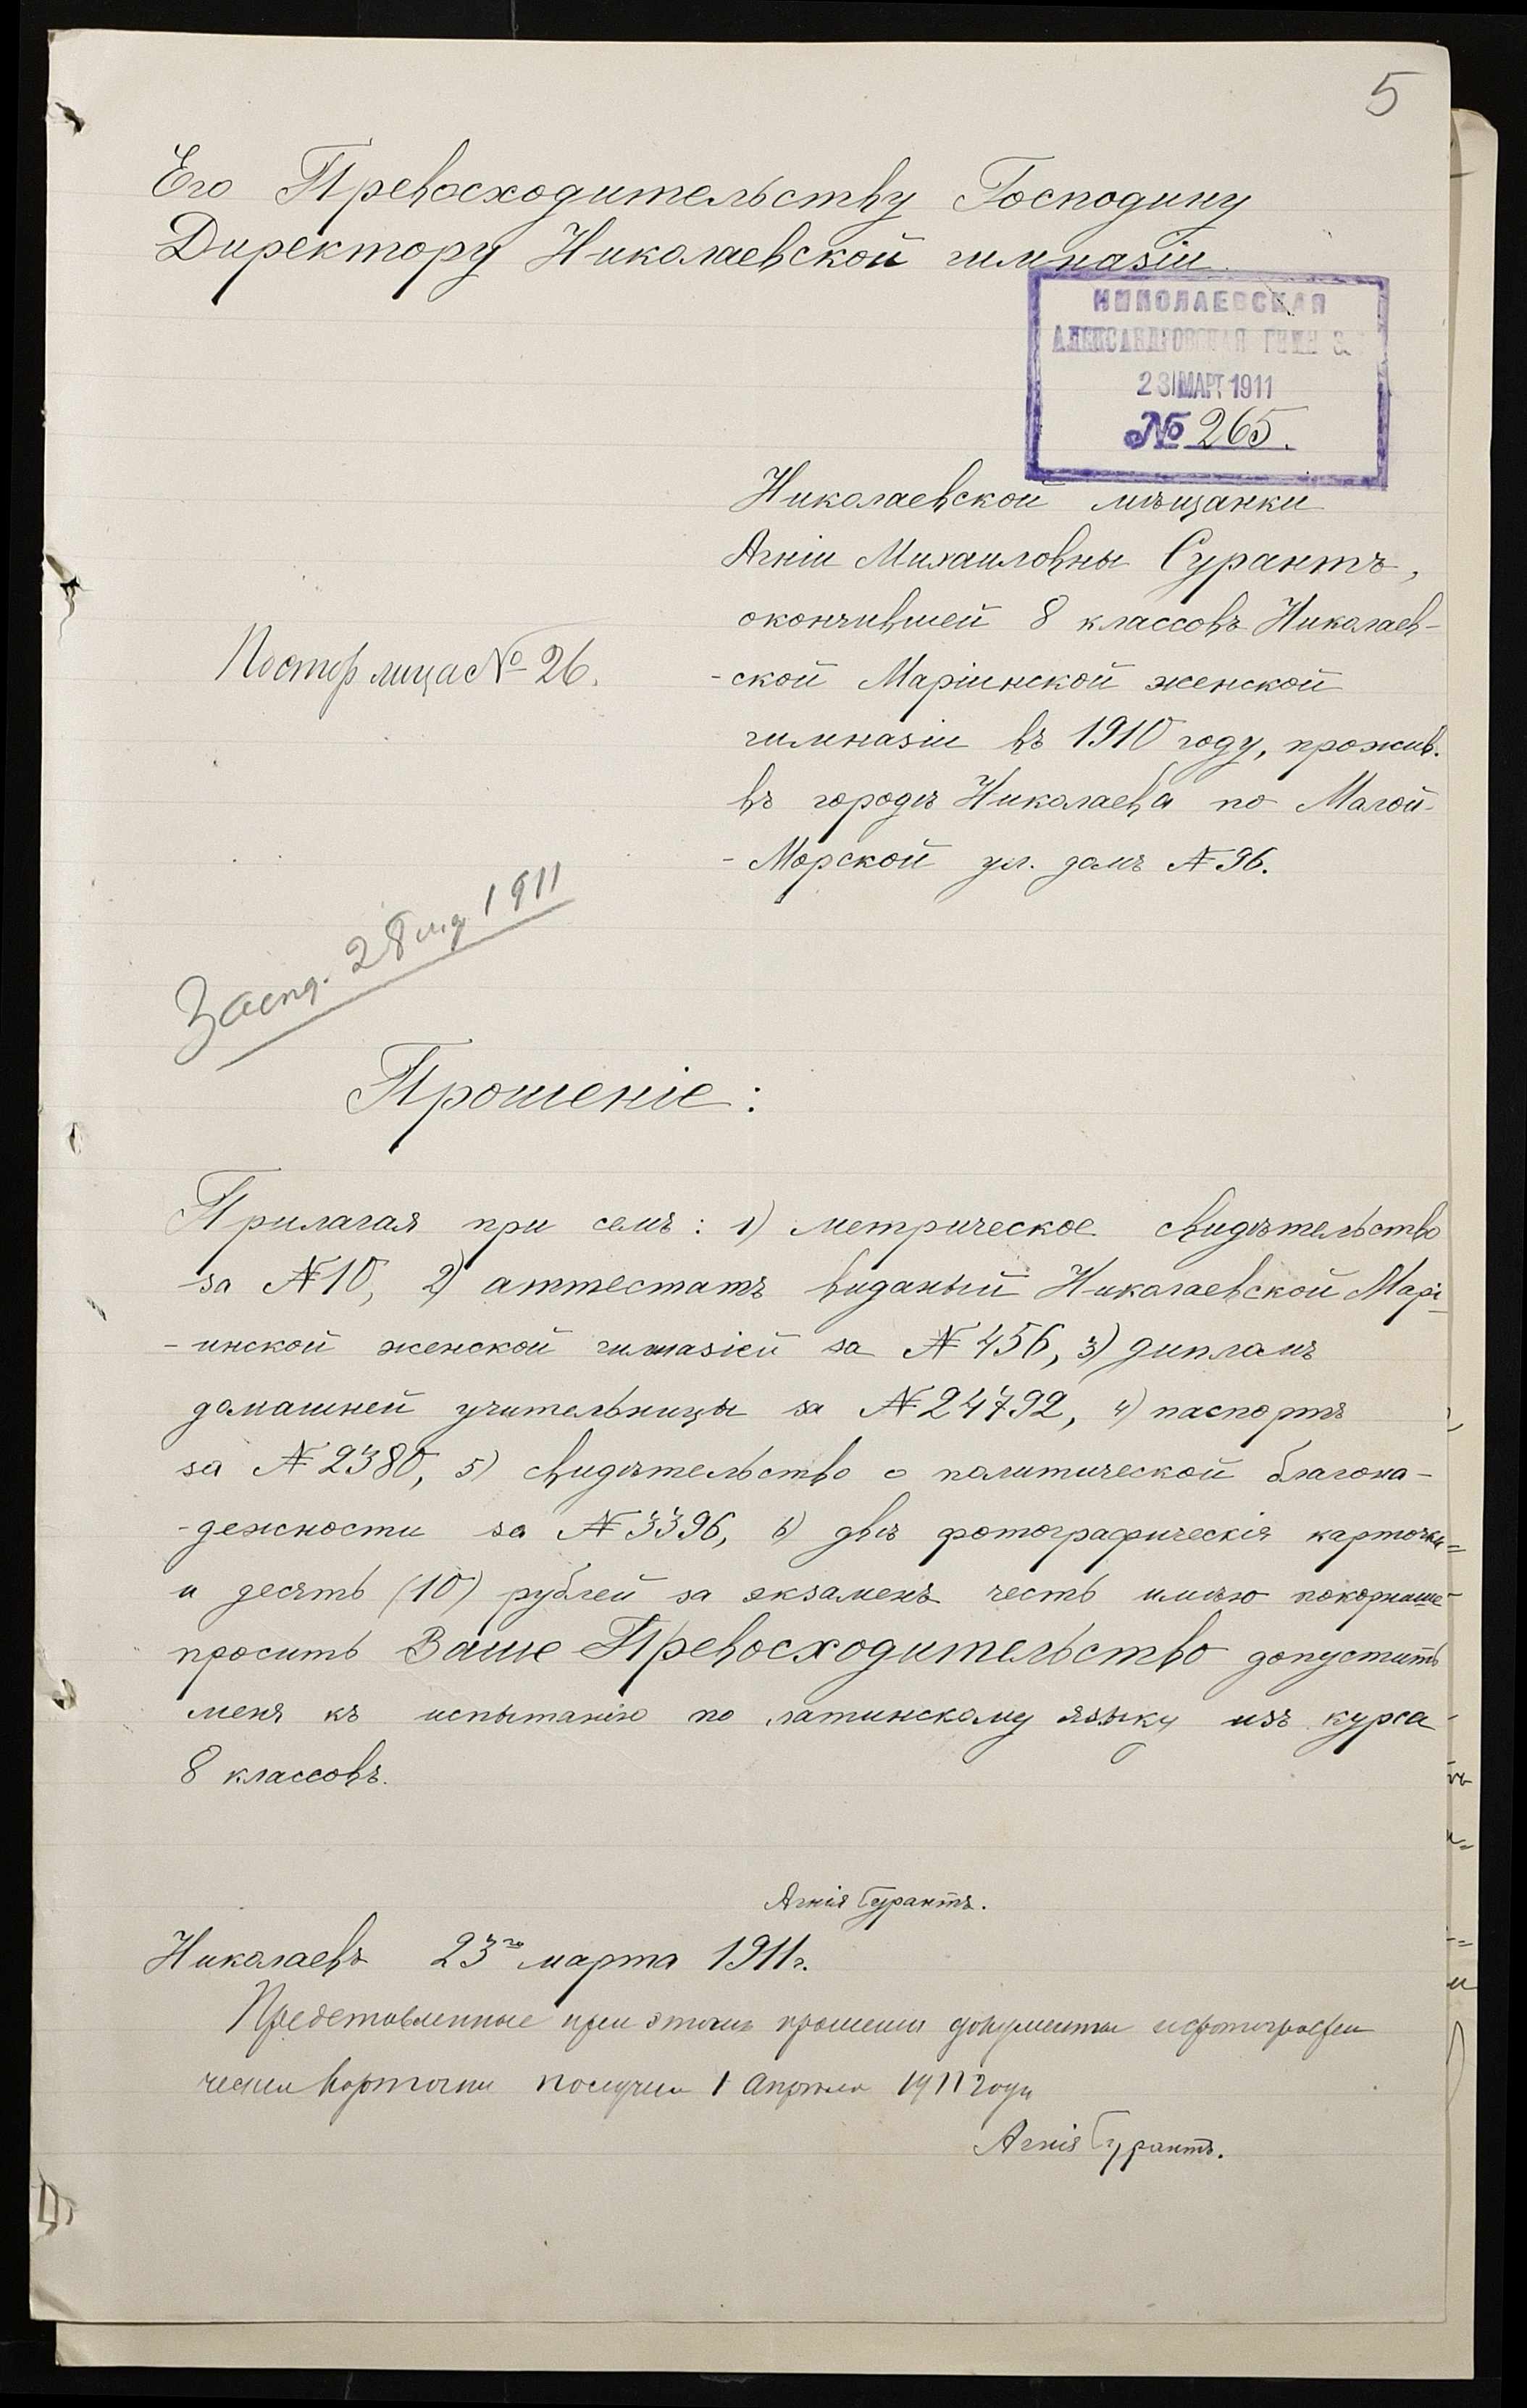 5
Его Превосходительству Господину
Директору Николаевской гимназіи.
НИКОЛАЕВСКАЯ
АЛЕКСАНДРОВСКАЯ ГИМН
23 МАРТ 1911
№ 265.
Николаевской мѣщанки
Агніи Михаиловны Сурантъ,
окончившей 8 классовъ Николаев-
-ской Маріинской женской
гимназіи въ 1910 году, прожив.
въ городѣ Николаева по Малой-
-Морской ул. домъ № 96.
Постор лица № 26.
1911
Прошеніе:
Прилагая при семъ: 1) метрическое свидѣтельство
за № 10, 2) аттестатъ виданый Николаевской Марі-
-инской женской гимназіей за № 456, 3) дипломъ
домашней учительницы за № 24792, 4) паспортъ
за № 2380, 5) свидѣтельство о политической благона-
-дежности за № 3396, 6) двѣ фотографическія карточки=
и десять (10) рублей за экзаменъ честь имѣю покорнѣше
просить Ваше Превосходительство допустить
меня къ испытанію по латинскому языку изъ курса
8 классовъ.
Агнія Сурантъ.
Николаевъ 23го марта 1911 г.
Представленные при этомъ прошеніи документы и фотографи
ческіи карточки получила 1 Апрѣля 1911 года
Агнія Сурантъ.